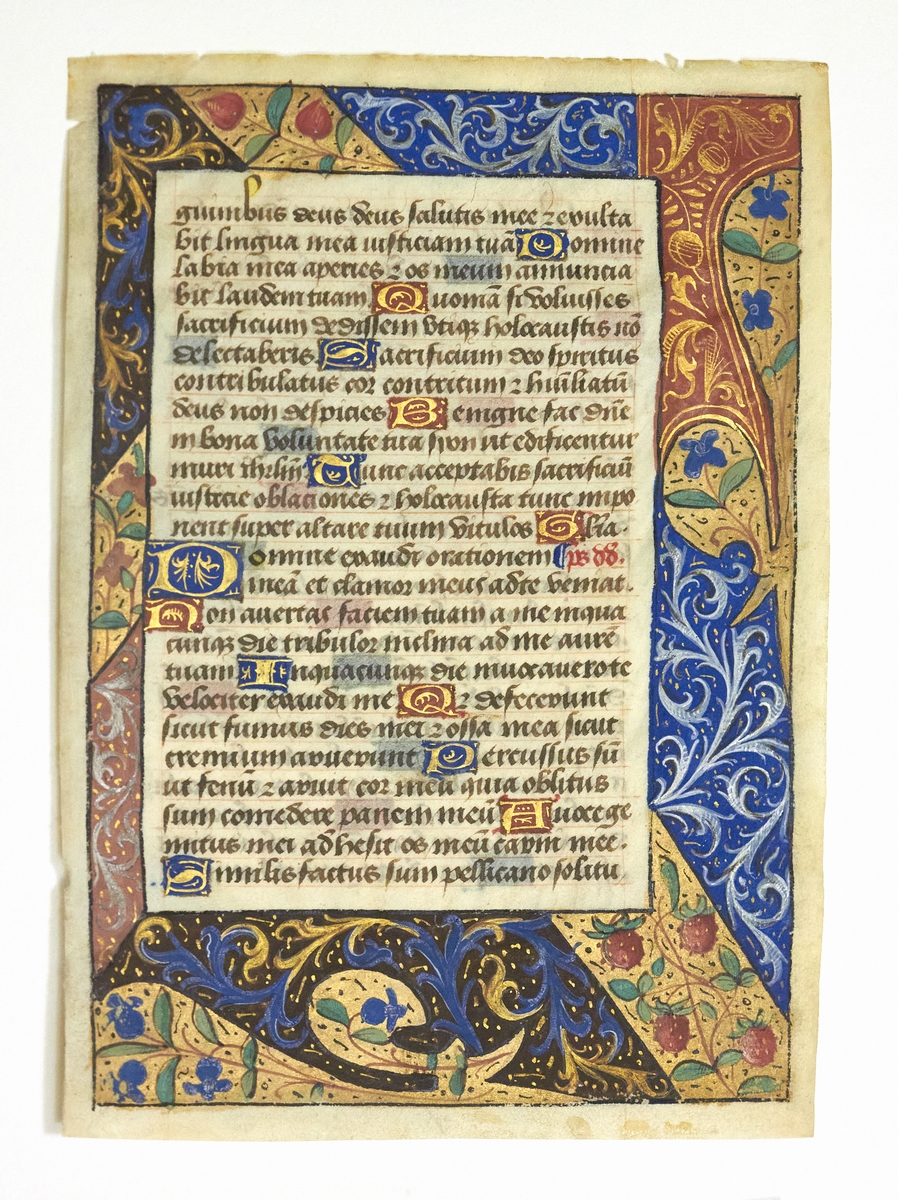 guinibus deus deus salutis mee ⁊ exulta
bit lingua mea iusticiam tuā Domine
labia mea aperies ⁊ os meum annuncia
bit laudem tuam Quoniā si voluisses
sacrificium dedissem vtiqꝫ holocaustis nō
delectaberis Sacrificium deo spiritus
contribulatus cor contritum ⁊ humiliatū
deus non despicies Benigne fac dn̄e
in bona voluntate tua syon ut edificentur
muri ihrlm̄ Tunc acceptabis sacrificiū
iusticie oblationes ⁊ holocausta tunc impo
nent super altare tuum vitulos Glīa.
Domine exaudi orationem ps dd.
meā et clamor meus ad te veniat.
Non avertas faciem tuam a me inqua
cunqꝫ die tribulor inclina ad me aurē
tuam Inquacunqꝫ die invocavero te
velociter exaudi me Qꝫ defecerunt
sicut fumus dies mei ⁊ ossa mea sicut
cremium aruerunt Percussus sū
ut fenū ⁊ aruit cor meū quia oblitus
sum comedere panem meū A voce ge
mitus mei adhesit os meū carni mee.
Similis factus sum pellicano solitu